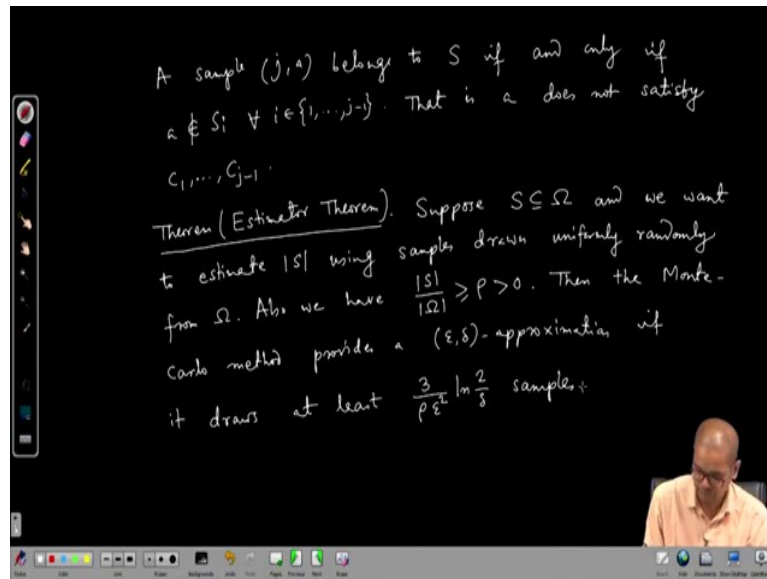 A sample (j,a) belongs to S if and only if
a ∉ Si ∀ i ∈ {1,...,j-1}. That is a does not satisfy
C1,..., Cj-1.
Theorem (Estimator Theorem). Suppose S ⊆ Ω and we want
to estimate |S| using samples drawn uniformly randomly
from Ω. Also we have |S|/|Ω| ≥ ρ > 0. Then the Monte-
Carlo method provides a (ε,δ)-approximation if
it draws at least 3/(ρε²) ln 2/δ samples.